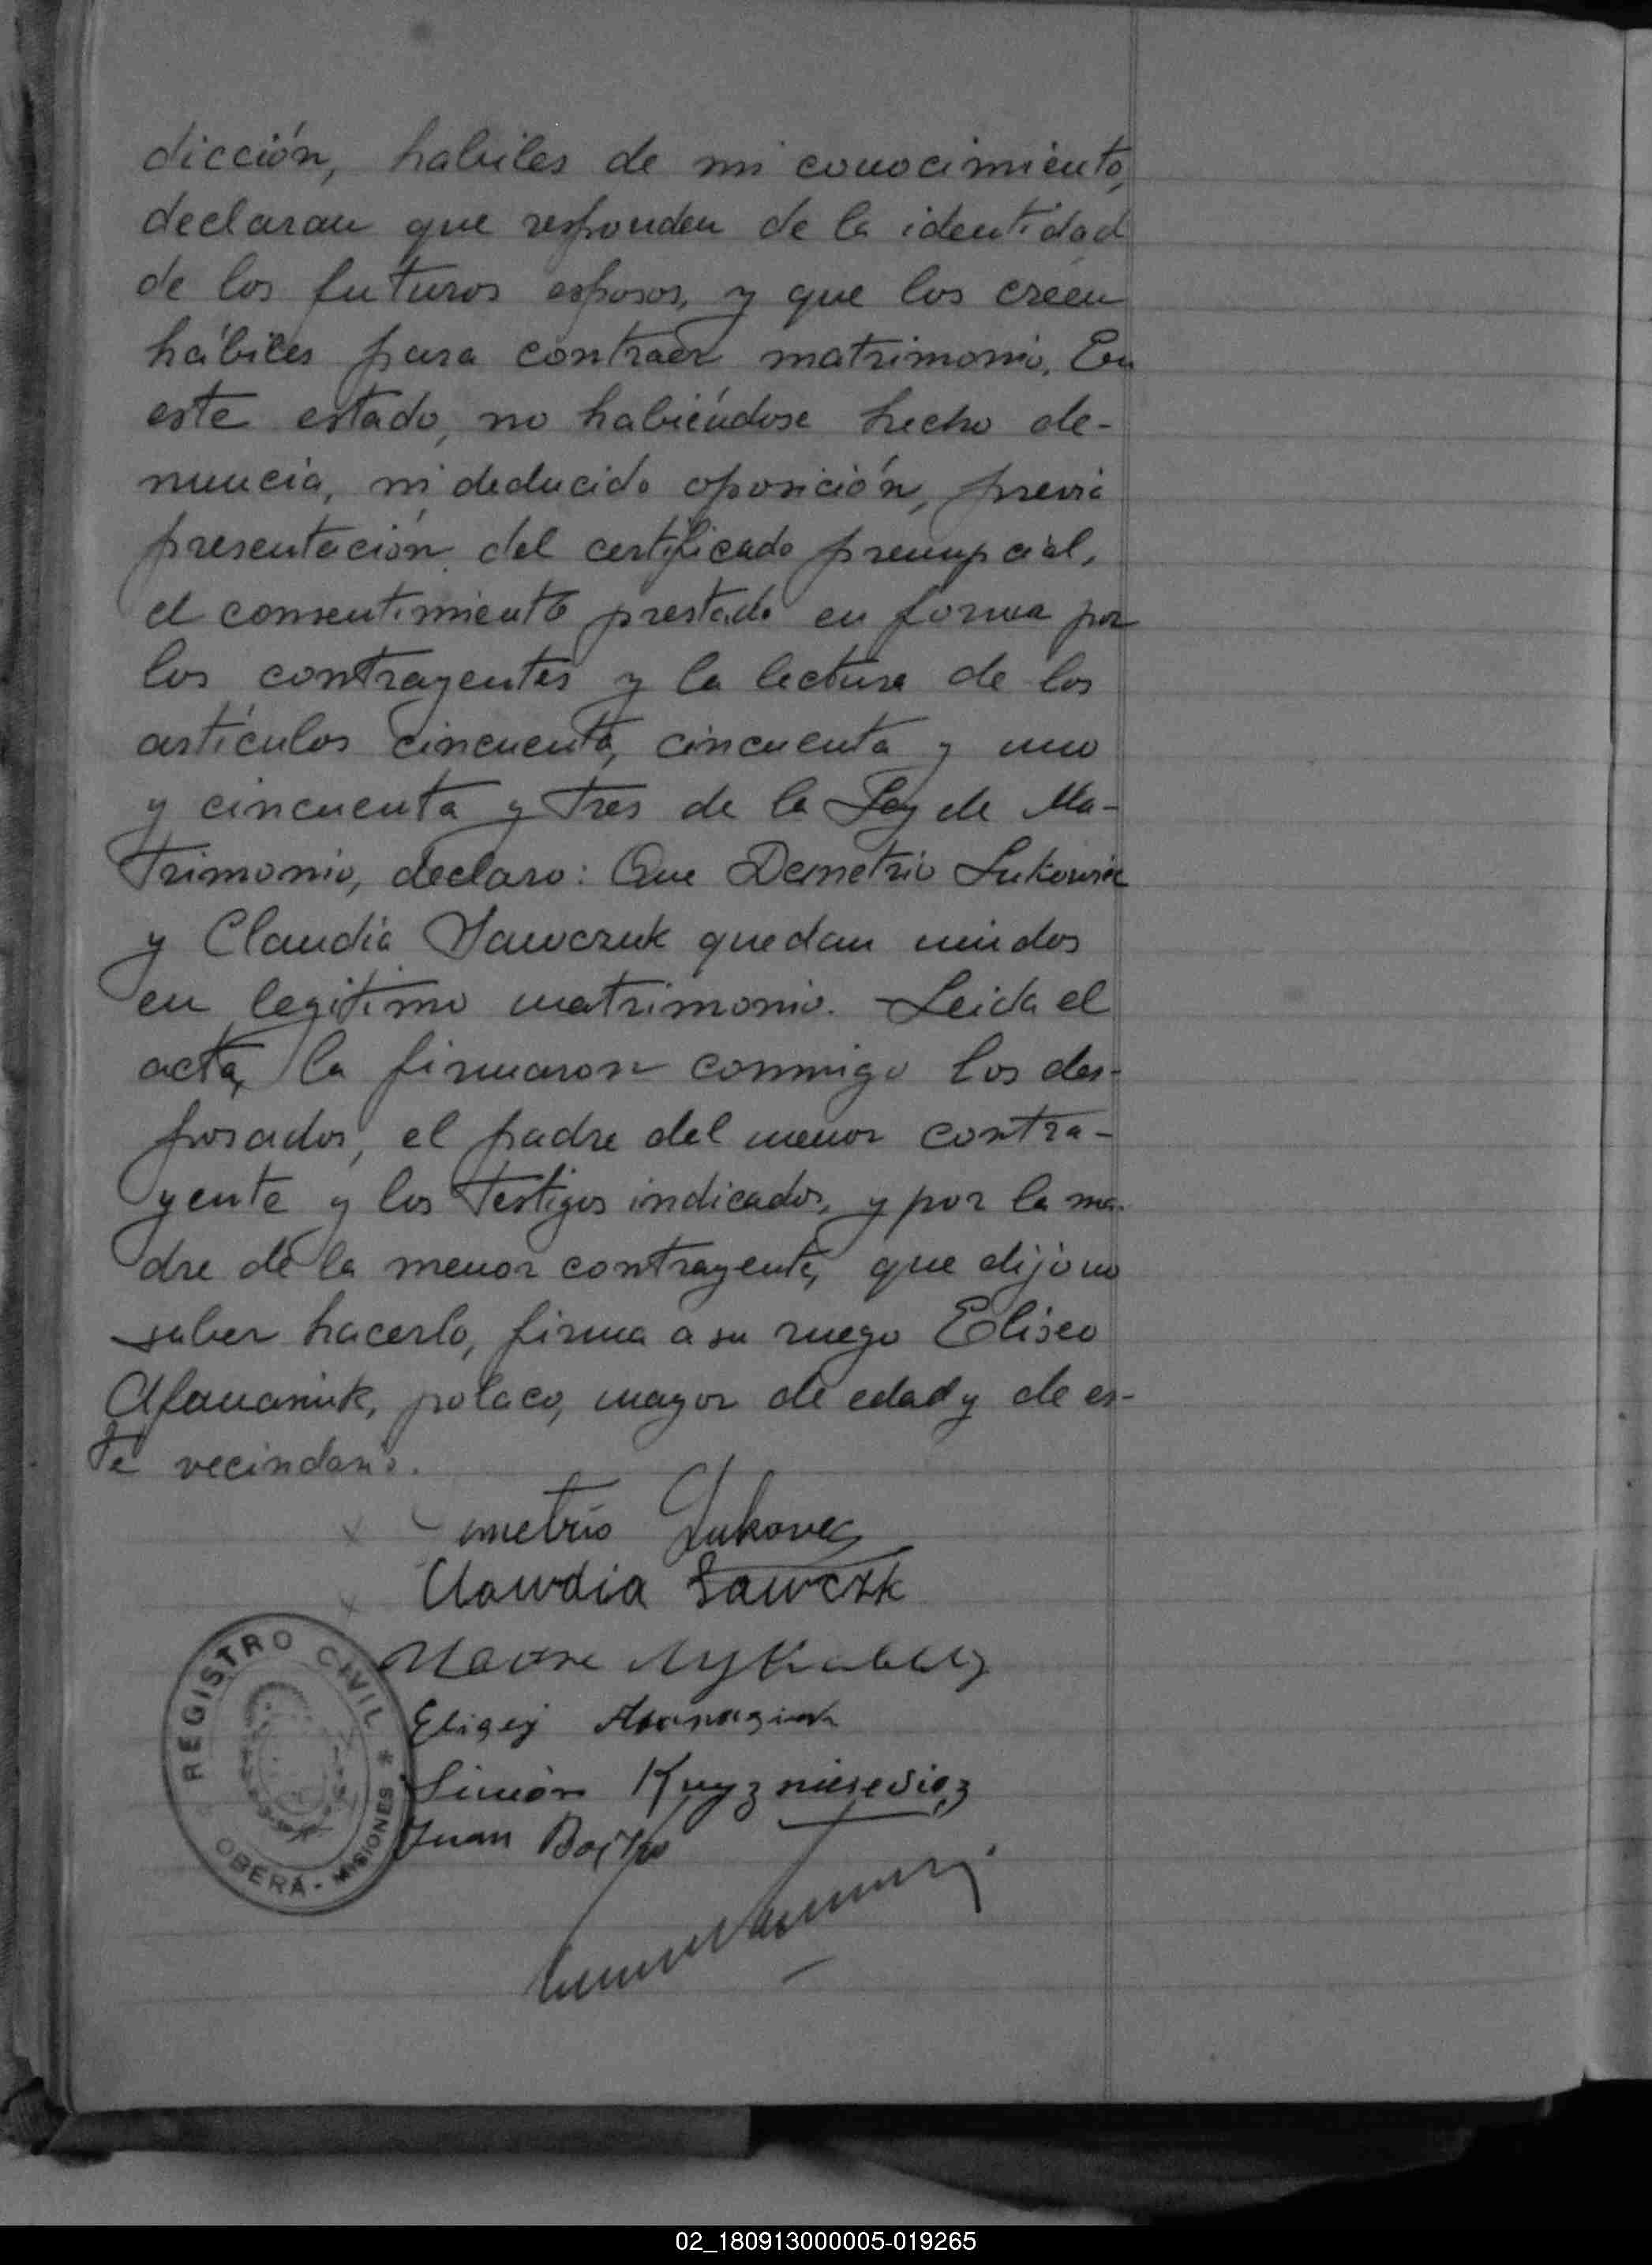 dicción, habiles de mi conocimiento,
declaran que responden de la identidad
de los futuros esposos, y que los creen
hábiles para contraer matrimonio. En
este estado, no habiéndose hecho de-
nuncia, ni deducido oposición, previa
presentación del certificado prenupcial,
el consentimiento prestado en forma por
los contrayentes y la lectura de los
artículos cincuenta, cincuenta y uno
y cincuenta y tres de la Ley de Ma-
trimonio, declaro: Que Demetrio Lukowiec
y Claudia Sawczuk quedan unidos
en legitimo matrimonio. Leida el
acta, la firmaron conmigo los des-
posados, el padre del menor contra-
yente y los testigos indicados, y por la ma-
dre de la menor contrayente, que dijo no
saber hacerlo, firma a su ruego Eliseo
Afanasiuk, polaco, mayor de edad y de es-
te vecindario.
metrio Lukowec
Claudia Sawczk
Elisej Afanasiuk
Simón
Juan
REGISTRO CIVIL *
OBERÁ - MISIONES
02_180913000005-019265